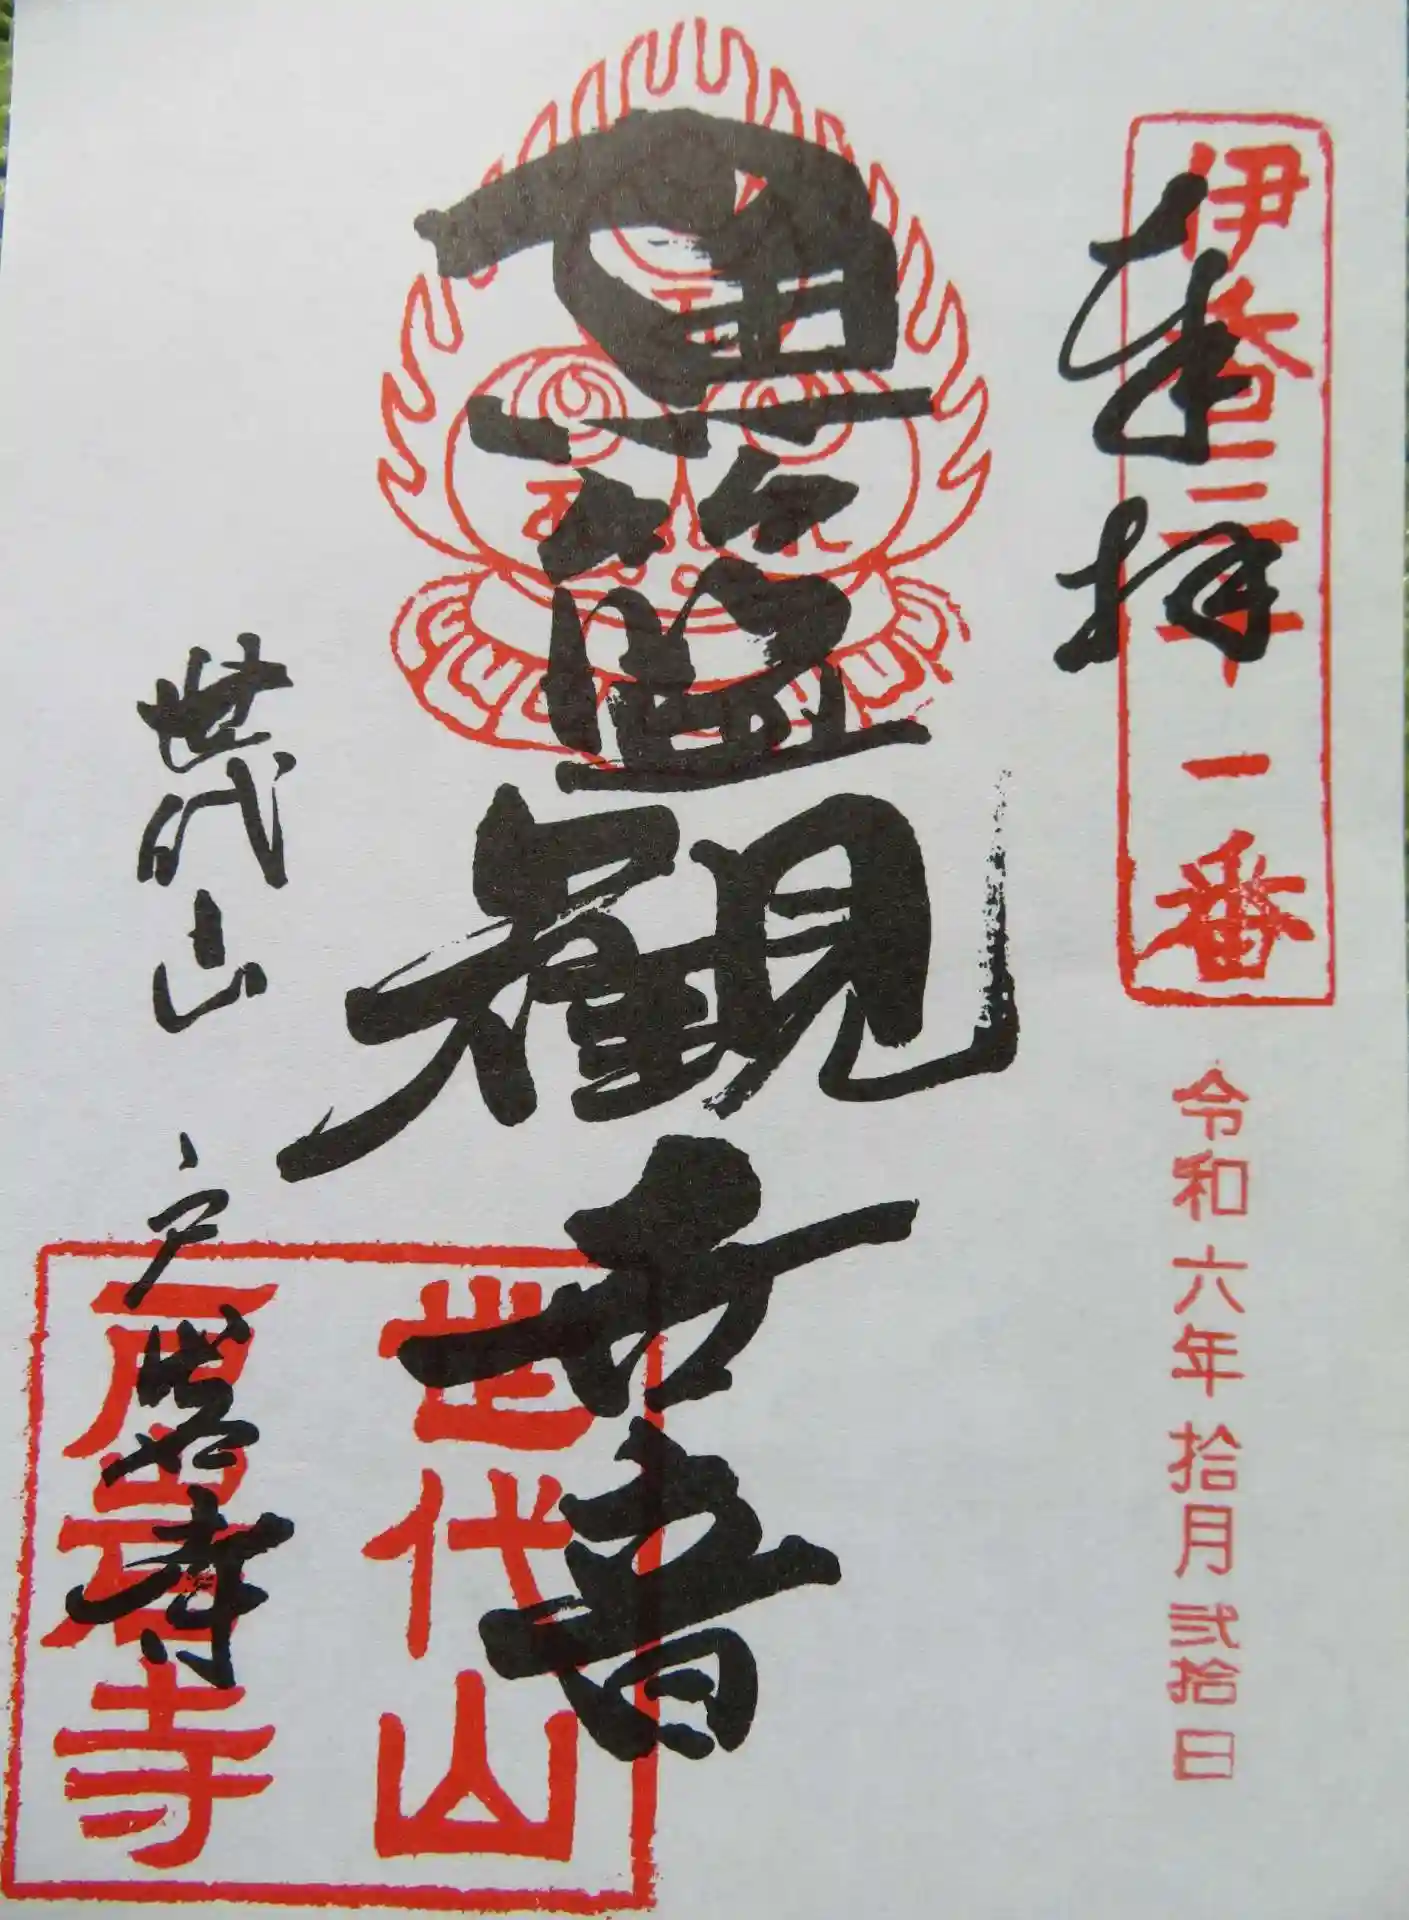 伊香三十一番
奉拝
令和六年拾月弐拾日
魚籃観世音
世代山 戸岩寺
世代山
戸岩寺